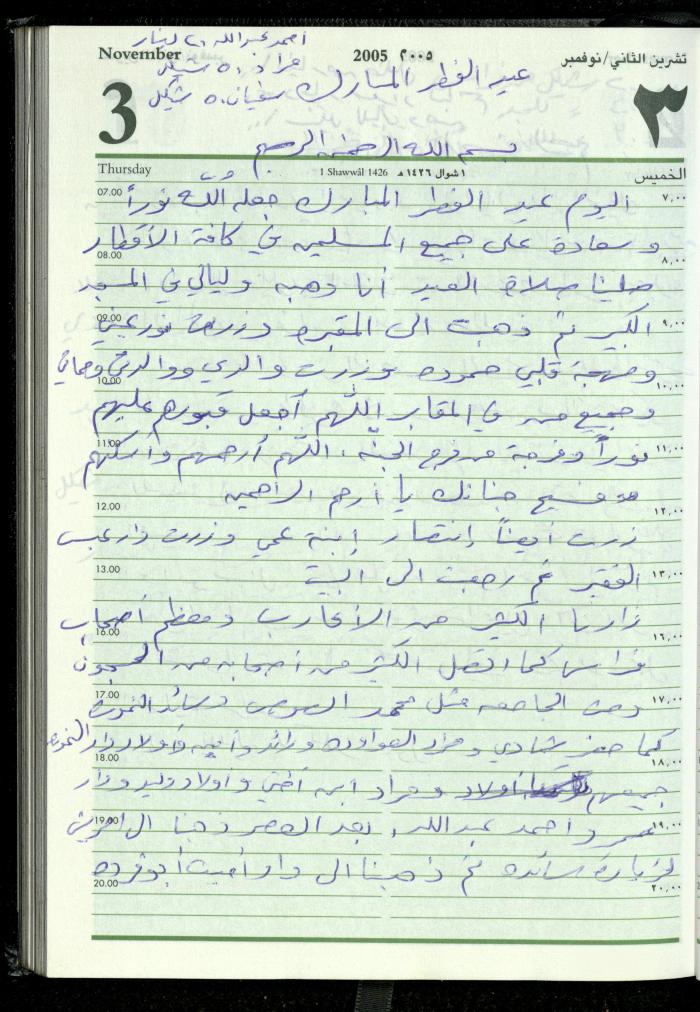 أحمد عبدالله ٢٠ دينار
November 2005 ٢٠٠٥ تشرين الثاني/نوفمبر
مراد ٥٠ شيكل
عيد الفطر المبارك سفيان ٥٠ شيكل
3 ٣
بسم الله الرحمن الرحيم
Thursday 1 Shawwâl 1426 ١ شوال ١٤٢٦ هـ الخميس
07.00 اليوم عيد الفطر المبارك جعله الله نوراً ٧,٠٠
وسعادة على جميع المسلمين في كافة الأقطار
08.00 ٨,٠٠
صلينا صلاة العيد أنا وهبه وليالي في المسجد
09.00 الكبير ثم ذهبت الى المقبره وزرت نور عيني ٩,٠٠
ومهجة قلبي حموده وزرت والدي ووالدتي وحماتي
10.00 ١٠,٠٠
وجميع من في المقابر اللهم أجعل قبورهم عليهم
11.00 نوراً وفرجة من فرج الجنه، اللهم أرحمهم وأسكنهم ١١,٠٠
فسيح جنانك يا أرحم الراحمين
12.00 ١٢,٠٠
زرت أيضاً إنتصار إبنة عمي وزرت دار عبس
13.00 الفقير ثم رجعت الى البيت ١٣,٠٠
زارنا الكثير من الأقارب ومعظم أصحاب
16.00 ١٦,٠٠
فراس كما اتصل الكثير من أصحابه من السجون
17.00 ومن الجامعه مثل محمد وسائد النمورة ١٧,٠٠
كما حضر شادي ومراد العواوده ورائد وأولاد دار النموره
18.00 ١٨,٠٠
جميعهم ومراد ابن أختي وأولاد وليد ودار
19.00 عمر وأحمد عبدالله، بعد العصر ذهبنا الى ١٩,٠٠
لزيارة سائده ثم ذهبنا الى دار
20.00 ٢٠,٠٠